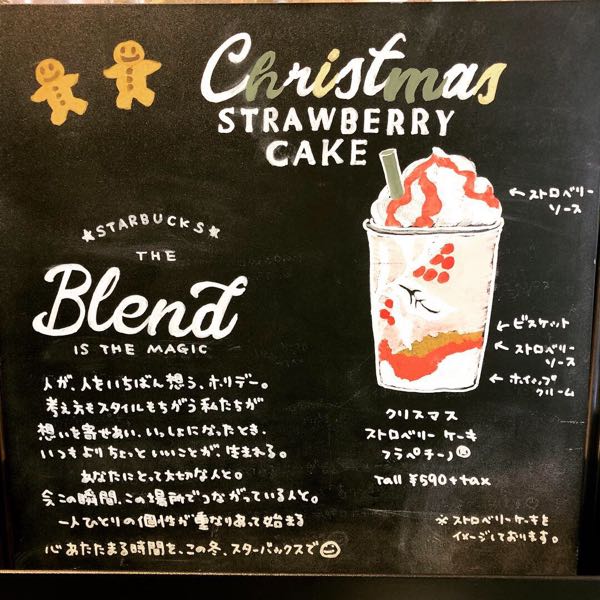 Christmas
STRAWBERRY
CAKE
ストロベリー
ソース
STARBUCKS
THE
Blend
IS THE MAGIC
ビスケット
ストロベリー
ソース
ホイップ
クリーム
人が、人をいちばん想う、ホリデー。
考え方もスタイルもちがう私たちが
想いを寄せあい、いっしょになったとき、
いつもよりちょっといいことが、生まれる。
あなたにとって大切な人と。
今この瞬間、この場所でつながっている人と。
一人ひとりの個性が重なりあって始まる
心あたたまる時間を、この冬、スターバックスで
クリスマス
ストロベリー ケーキ
フラペチーノ®
Tall ¥590+tax
※ストロベリーケーキを
イメージしております。